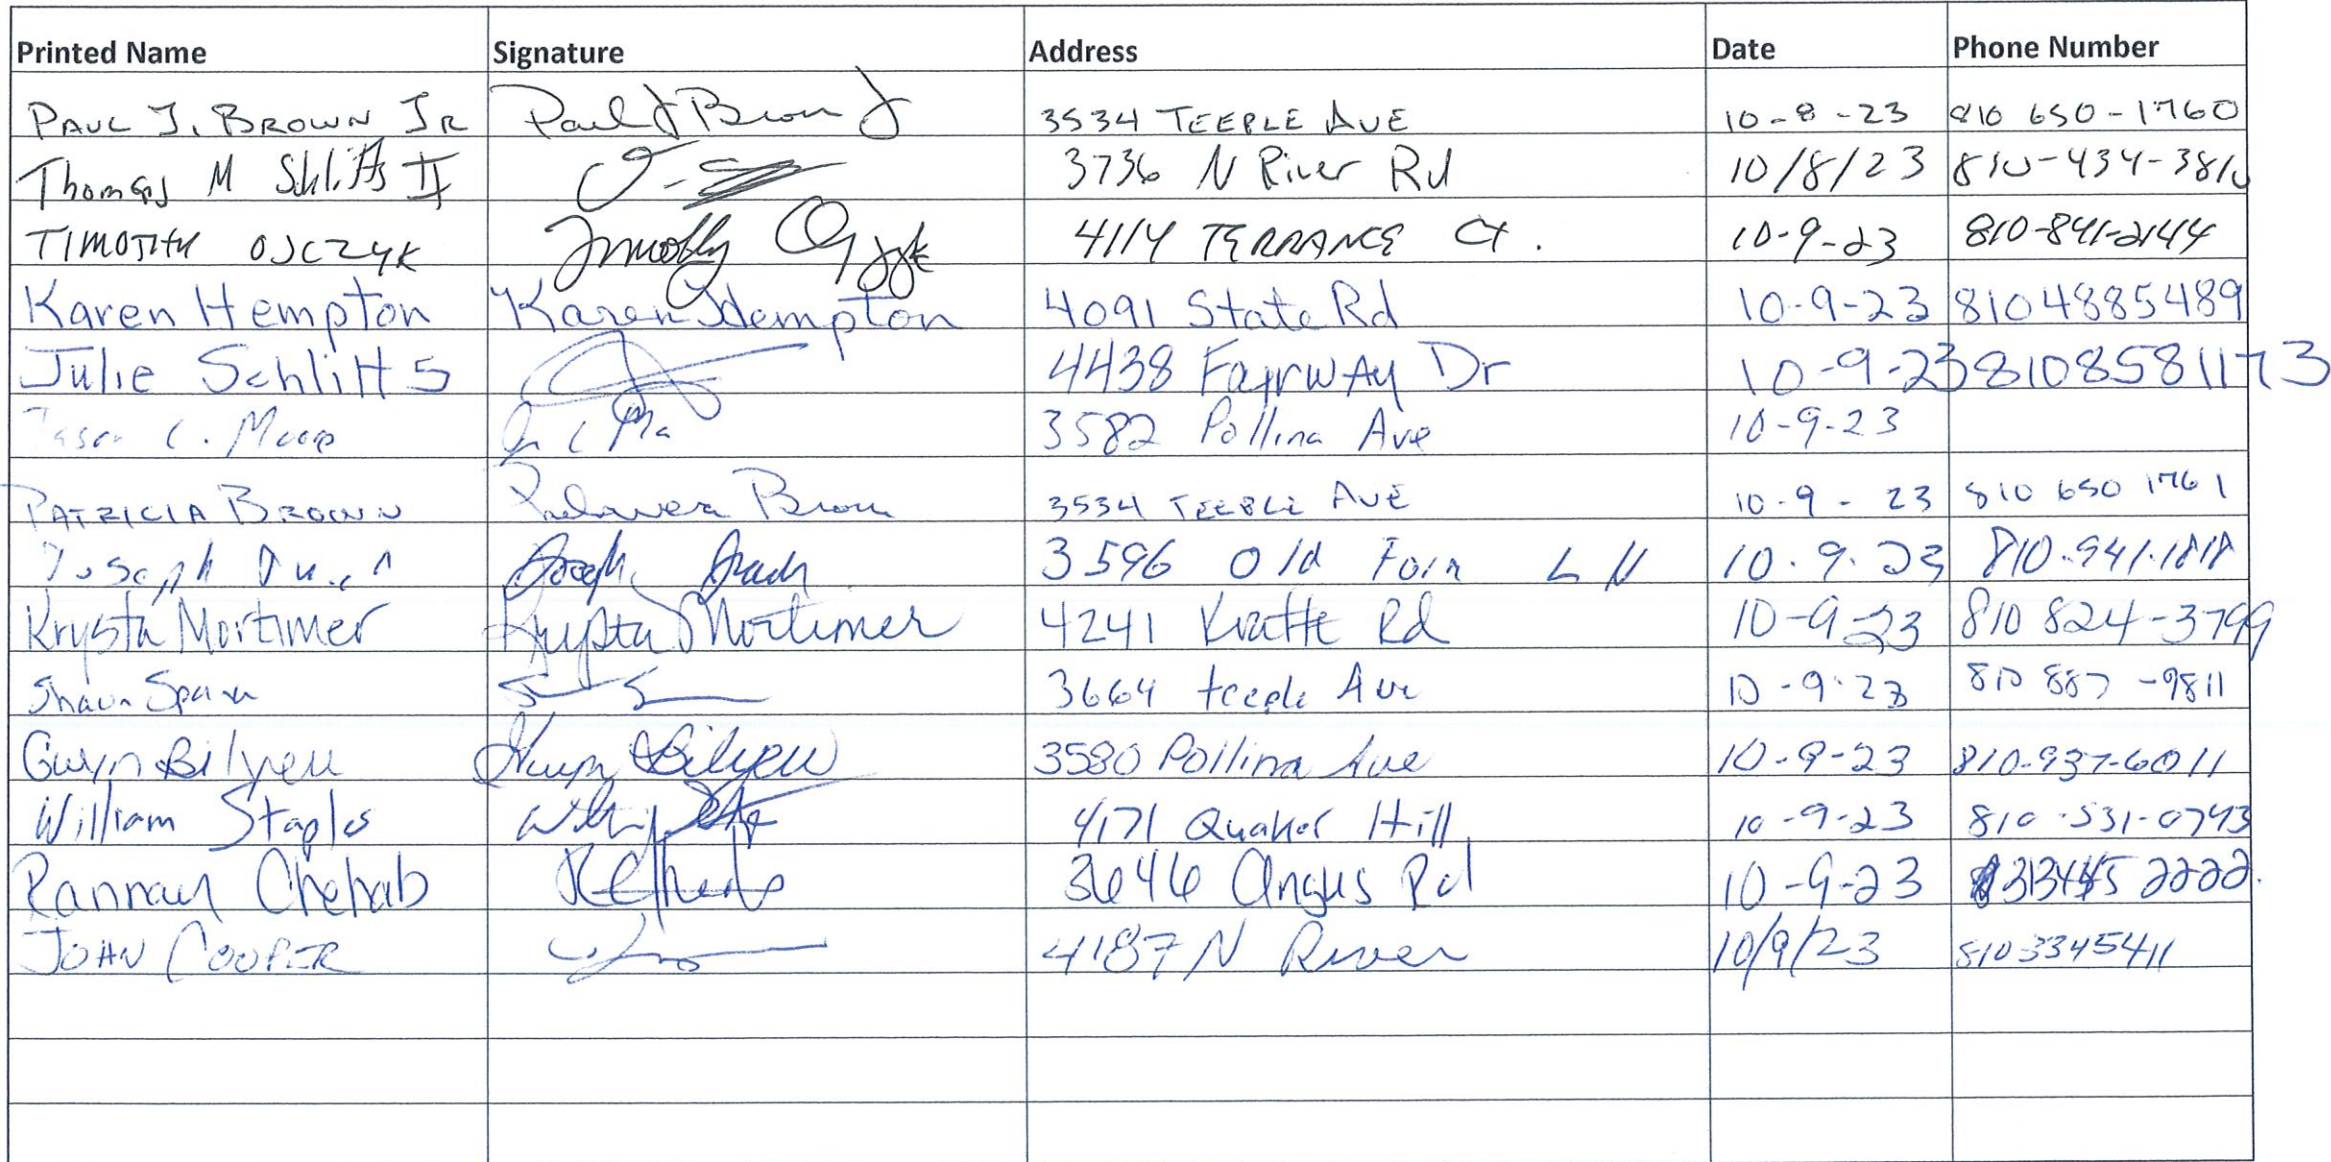 Printed Name Signature Address Date Phone Number
PAUL J. BROWN JR Paul J Brown J 3534 TEEPLE AVE 10-8-23 810 650-1760
Thomas M Shlitts II 3736 N River Rd 10/8/23 810-434-3810
TIMOTHY OJCZYK Timothy 4114 TERRANCE Ct. 10-9-23 810-841-2144
Karen Hempton Karen Hempton 4091 State Rd 10-9-23 8104885489
Julie Schlitts 4438 Fairway Dr 10-9-23 8108581173
Jason C. Moore 3582 Pollina Ave 10-9-23
PATRICIA BROWN Brown 3534 TEEPLE AVE 10-9-23 810 650 1761
Joseph 3596 Old Farm LN 10.9.23 810-941-1818
Krysta Mortimer Krysta Mortimer 4241 Kraft Rd 10-9-23 810 824-3799
Shaun 3664 teeple Ave 10-9-23 810 887-9811
Gwyn Bilyeu Gwyn Bilyeu 3580 Pollina Ave 10-9-23 810-937-6011
William Staples 4171 Quaker Hill 10-9-23 810-531-0743
Rannan Chehab 3646 Angus Rd 10-9-23 313445 2222.
JOHN COOPER 4187 N River 10/9/23 8103345411